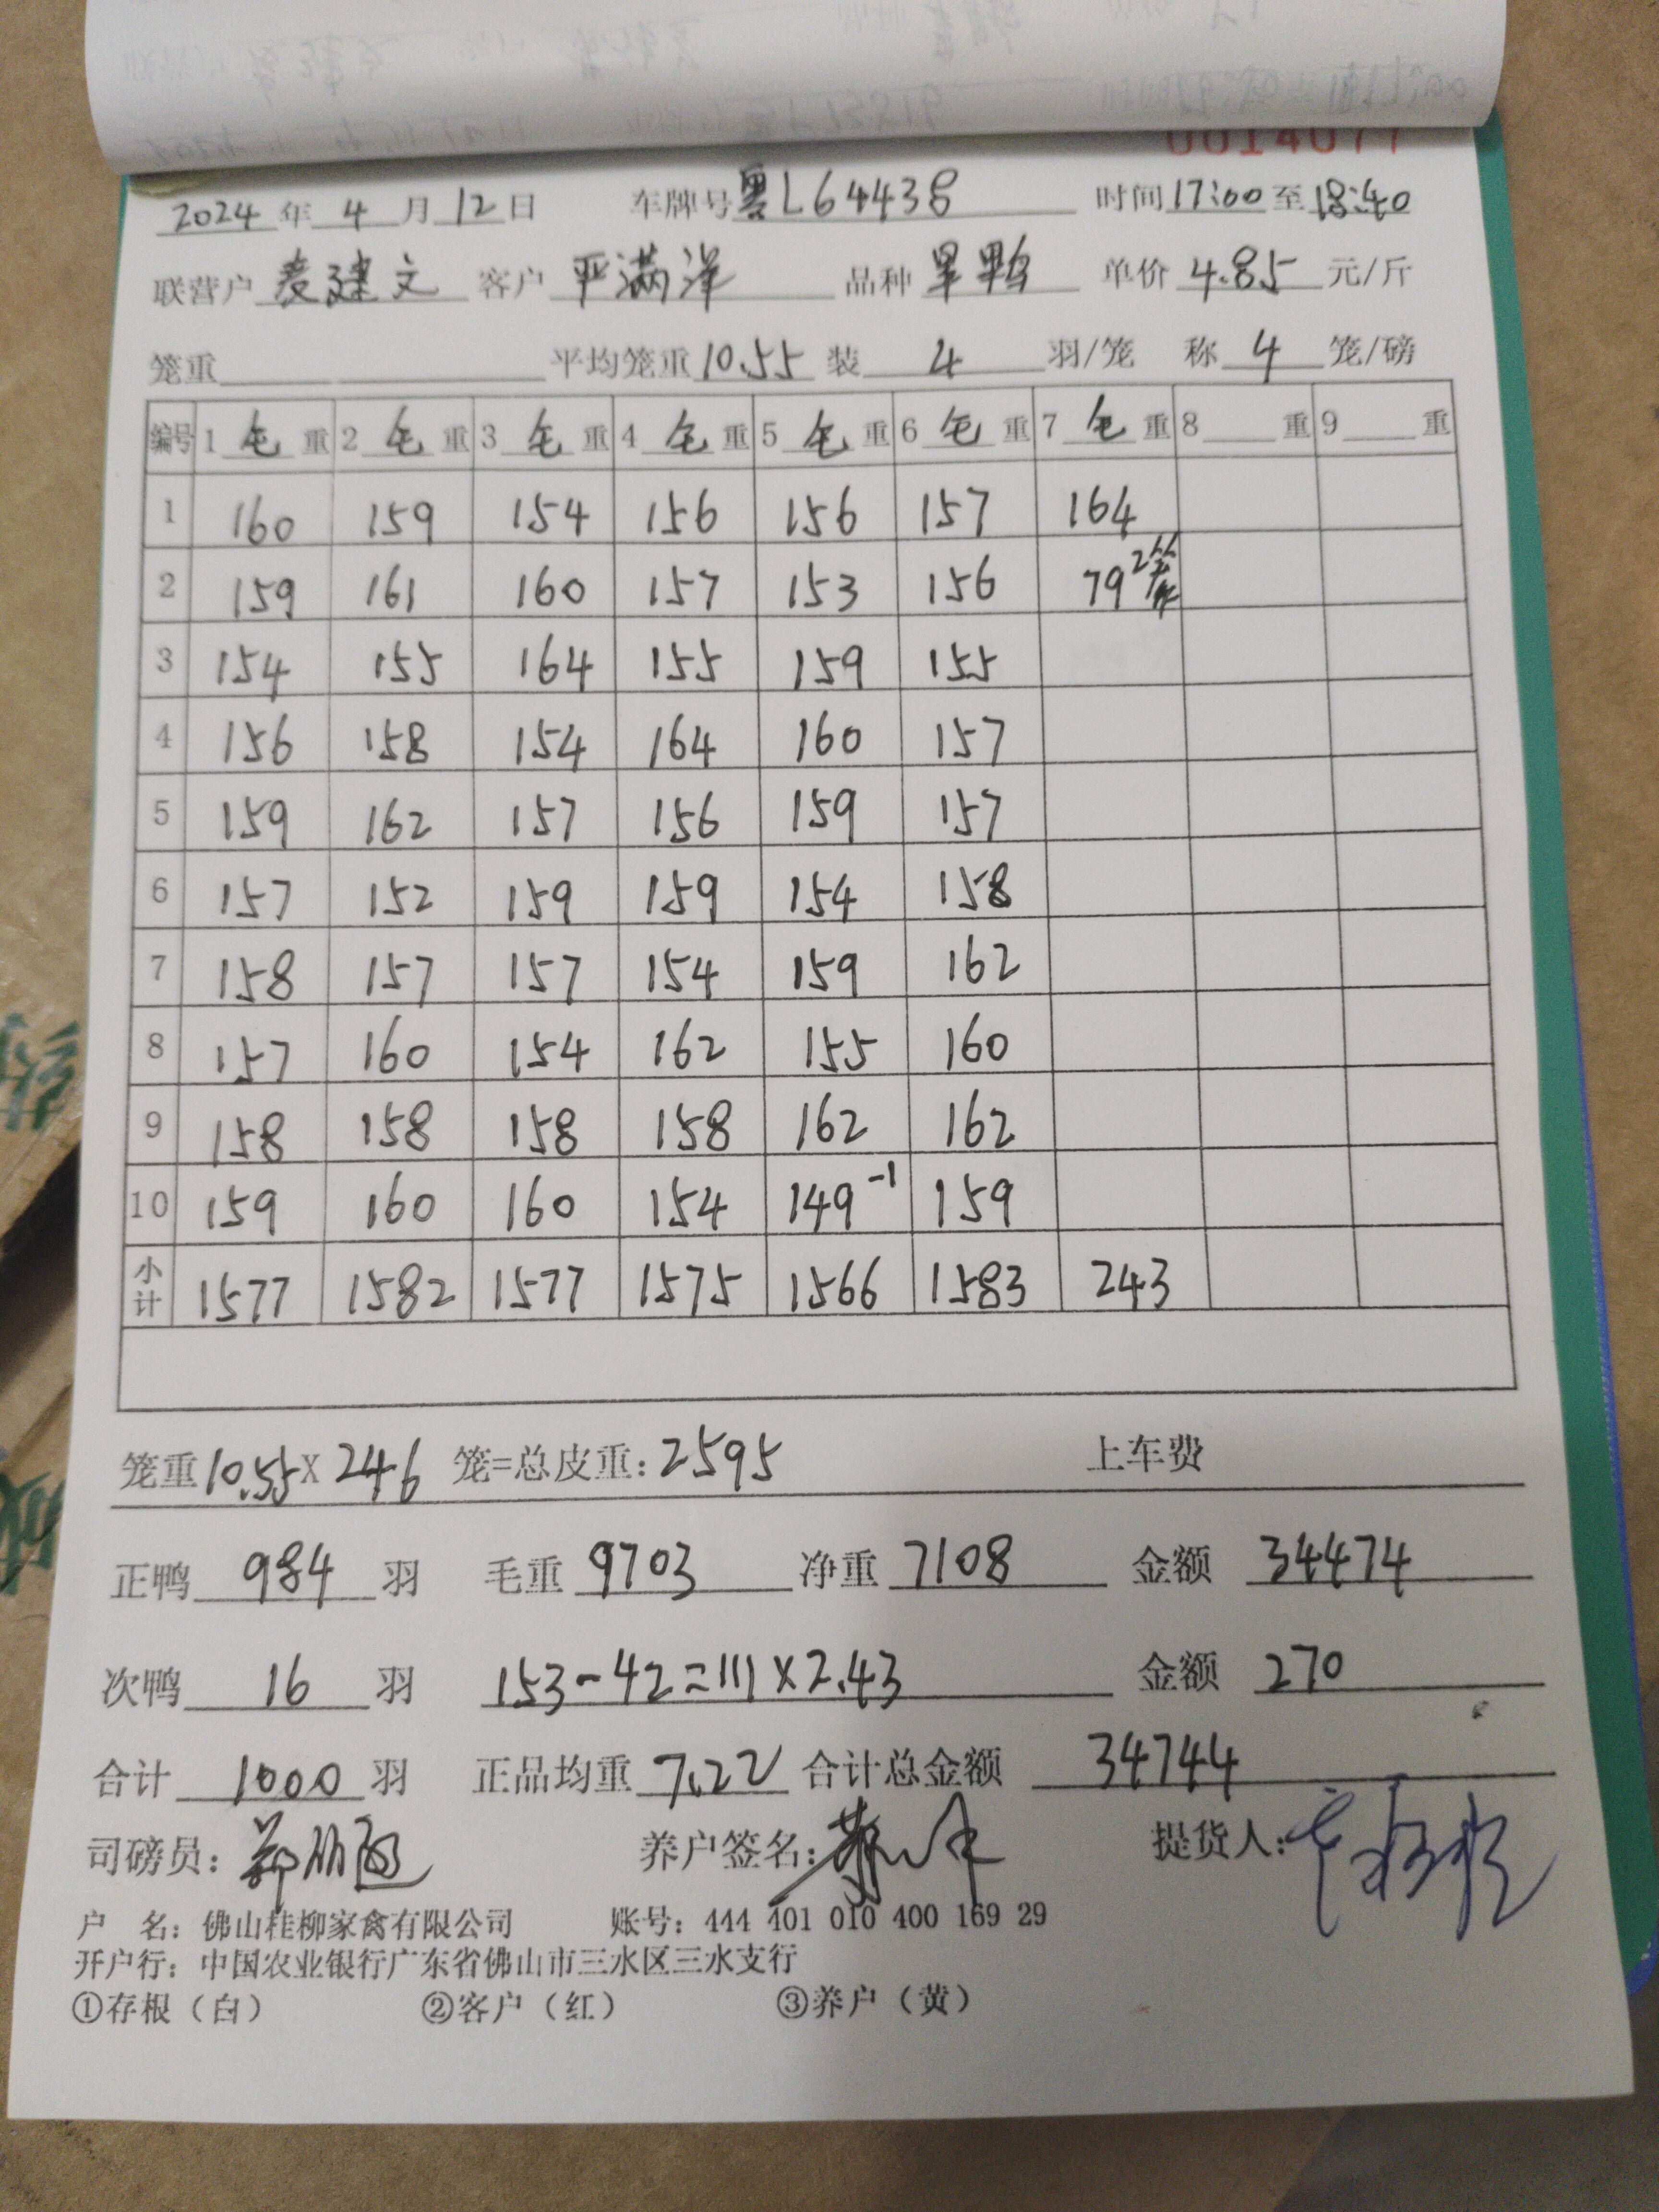 0014077
2024年4月12日 车牌号粤L64438 时间17:00至18:40
联营户麦建文 客户严满洋 品种旱鸭 单价4.85元/斤
笼重 平均笼重10.55 装4羽/笼 称4笼/磅
编号 1毛重 2毛重 3毛重 4毛重 5毛重 6毛重 7毛重 8重 9重
1 160 159 154 156 156 157 164
2 159 161 160 157 153 156 79 2笼
3 154 155 164 155 159 155
4 156 158 154 164 160 157
5 159 162 157 156 159 157
6 157 152 159 159 154 158
7 158 157 157 154 159 162
8 157 160 154 162 155 160
9 158 158 158 158 162 162
10 159 160 160 154 149-1 159
小计 1577 1582 1577 1575 1566 1583 243
笼重10.55X246笼=总皮重:2595 上车费
正鸭984羽 毛重9703 净重7108 金额34474
次鸭16羽 153-42=111×2.43 金额270
合计1000羽 正品均重7.22 合计总金额34744
司磅员: 养户签名: 提货人:
户 名: 佛山桂柳家禽有限公司 账号: 444 401 010 400 169 29
开户行: 中国农业银行广东省佛山市三水区三水支行
①存根（白） ②客户（红） ③养户（黄）